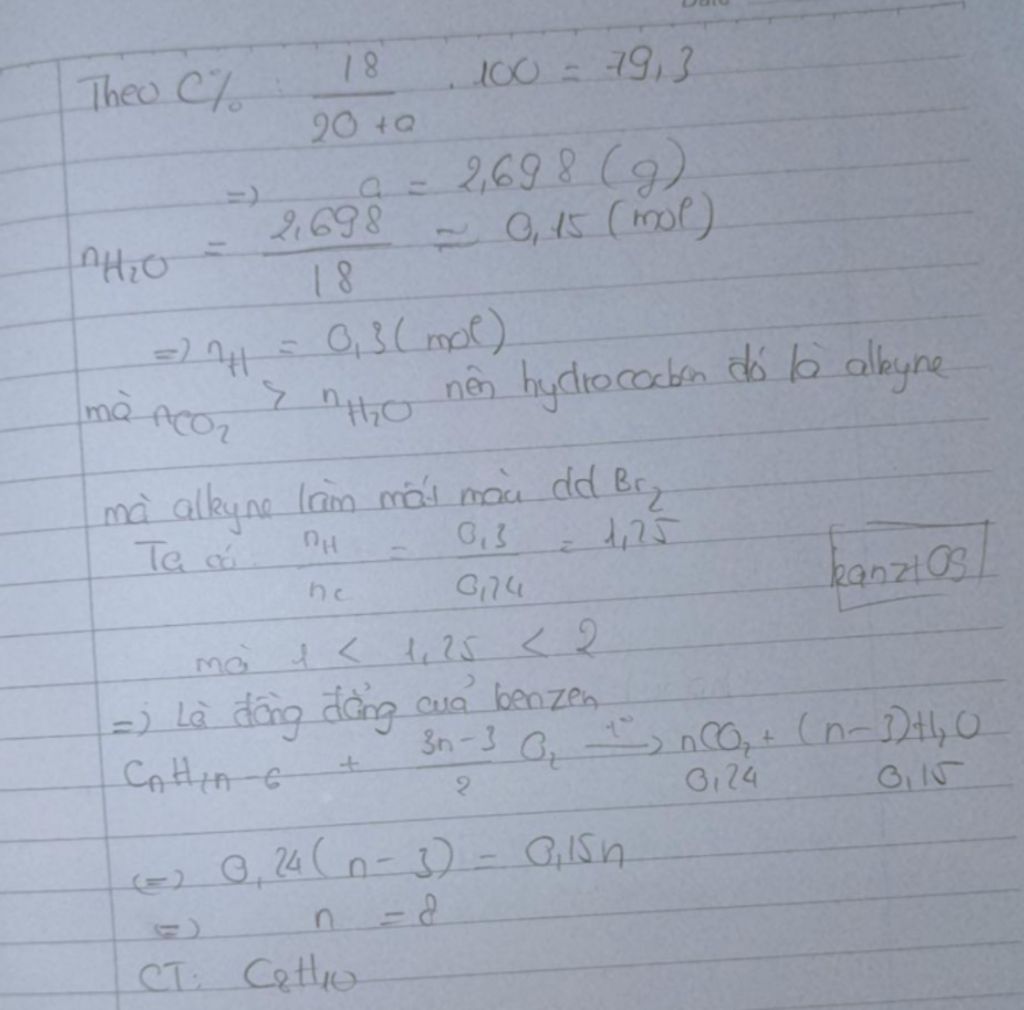 Theo C% : 18 / (20 + a) . 100 = 79,3
=) a = 2,698 (g)
nH₂O = 2,698 / 18 ≈ 0,15 (mol)
=) nH = 0,3 (mol)
mà nCO₂ > nH₂O nên hydrocacbon đó là alkyne
mà alkyne làm mất màu dd Br₂
Ta có nH / nc = 0,3 / 0,24 = 1,25
kanzt09
mà 1 < 1,25 < 2
=) Là đồng đẳng cuả benzen
CnH2n-6 + (3n-3)/2 O₂ —t°→ nCO₂ + (n-3)H₂O
0,24 0,15
(=) 0,24(n-3) = 0,15n
=) n = 8
CT: C8H10